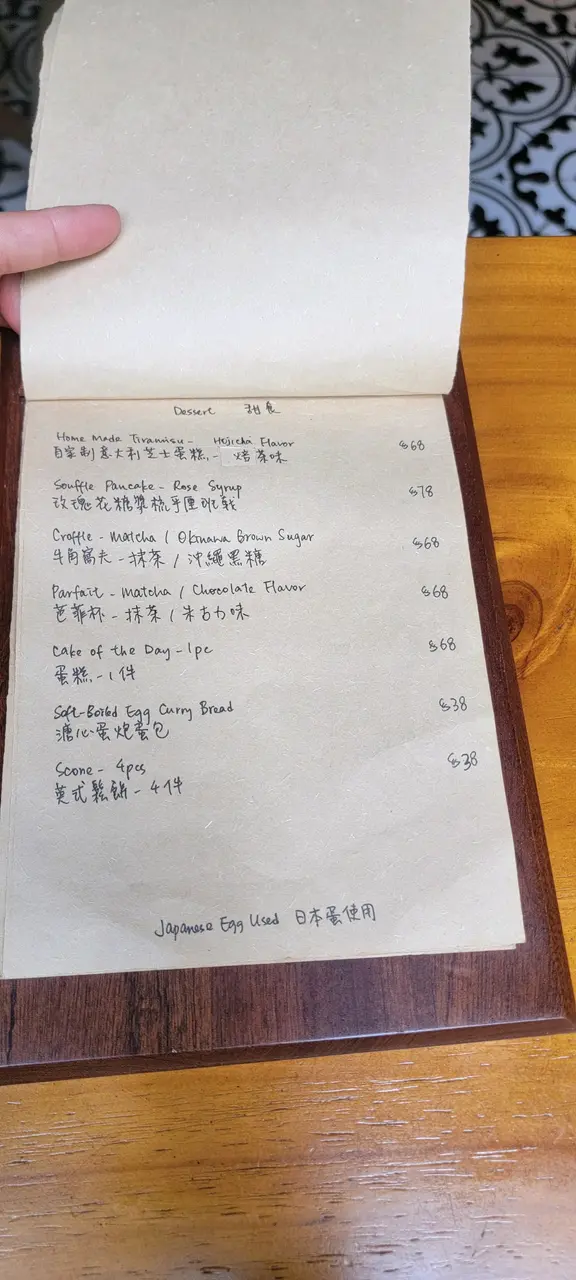 Dessert 甜食
Home Made Tiramisu - Hojicha Flavor $68
自家制意大利芝士蛋糕 - 焙茶味
Souffle Pancake - Rose Syrup $78
玫瑰花糖漿梳乎厘班戟
Croffle - Matcha / Okinawa Brown Sugar $68
牛角窩夫 - 抹茶 / 沖繩黑糖
Parfait - Matcha / Chocolate Flavor $68
芭菲杯 - 抹茶 / 朱古力味
Cake of the Day - 1pc $68
蛋糕 - 1件
Soft-Boiled Egg Curry Bread $38
溏心蛋炮蛋包
Scone - 4pcs $38
英式鬆餅 - 4件
Japanese Egg Used 日本蛋使用